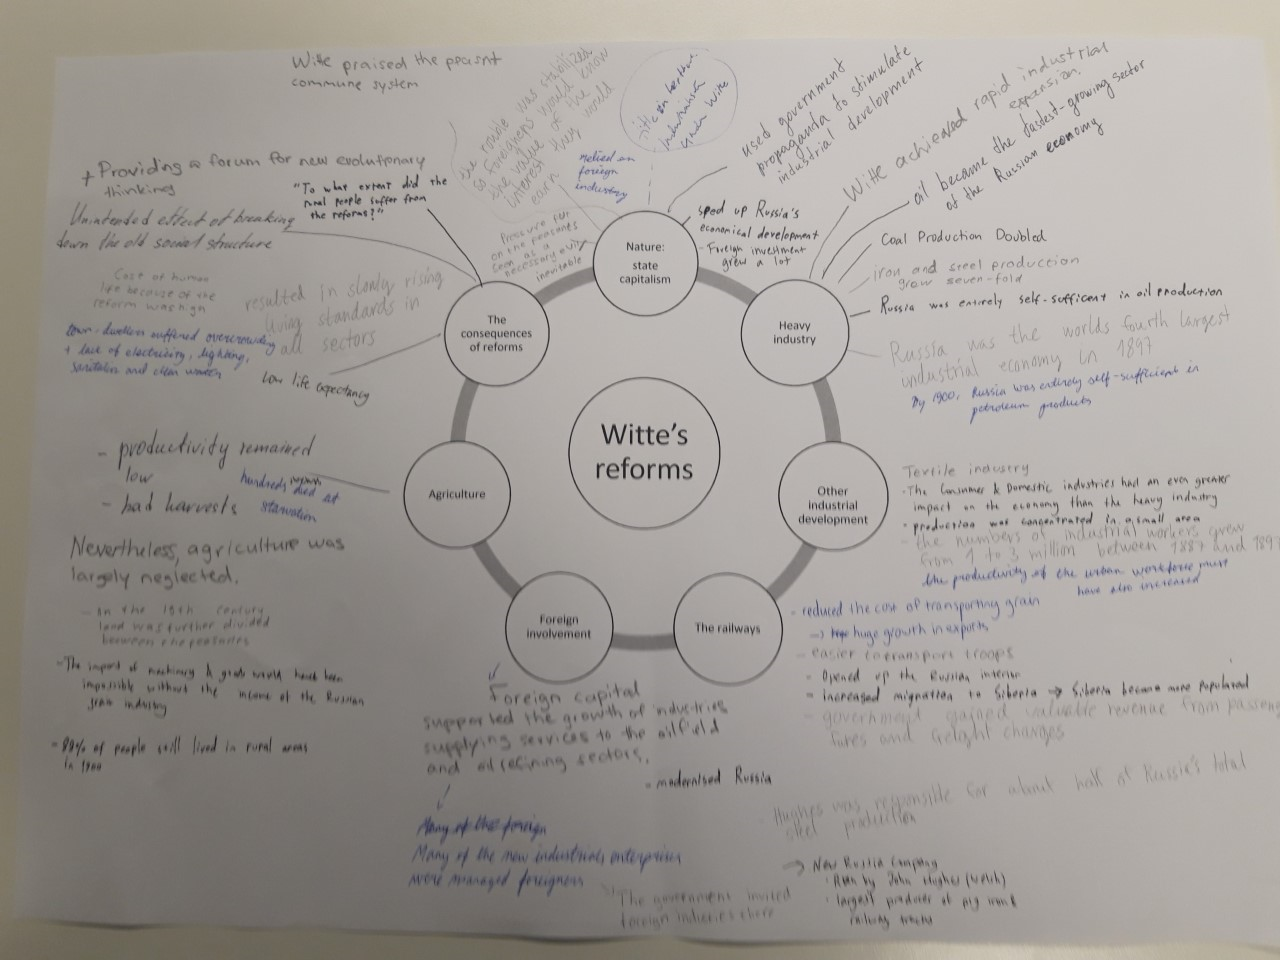 Witte's
reforms
Nature:
state
capitalism
Heavy
industry
Other
industrial
development
The railways
Foreign
involvement
Agriculture
The
consequences
of reforms
Witte praised the peasnt
commune system
+ Providing a forum for new evolutionary
thinking
"To what extent did the
rural people suffer from
the reforms?"
Unintended effect of breaking
down the old social structure
Cost of human
life because of the
reform was high
resulted in slowly rising
living standards in
all sectors
town-dwellers suffered overcrowding
+ lack of electricity, lighting,
sanitation and clean
Low life expectancy
the rouble was stabilized
so foreigners would know
the value of the
interest they would
earn
Pressure
on the peasnts
seen as a
necessary evil,
inevitable
relied on
foreign
industry
under Witte
used government
propaganda to stimulate
industrial development
sped up Russia's
economical development
- Foreign investment
grew a lot
Witte achieved rapid industrial
expansion.
oil became the fastest-growing sector
of the Russian economy
Coal Production Doubled
iron and steel production
grow seven-fold
Russia was entirely self-sufficent in oil production
Russia was the worlds fourth largest
industrial economy in 1897
By 1900, Russia was entirely self-sufficient in
petroleum products
Textile industry
- The Consumer & Domestic industries had an even greater
impact on the economy than the heavy industry
• production was concentrated in a small area
- the numbers of industrial workers grew
from 1 to 3 million between 1887 and 1897
the productivity of the urban workforce must
have also increased
- reduced the cost of transporting grain
-> huge growth in exports
- easier to transport troops
- Opened up the Russian interior
- Increased migration to Siberia → Siberia became more populated
- government gained valuable revenue from passeng
fares and freight charges
Hughes was responsible for about half of Russia's total
steel production
→ New Russia Company
• Run by John Hughes (Welsh)
• largest producer of pig iron &
railway tracks
Foreign capital
supported the growth of industries
supplying services to the oilfield
and oil refining sectors.
- modernised Russia
Many of the foreign
Many of the new industrials enterprises
were managed foreigners
The government invited
foreign
- productivity remained
low
- bad harvests
hundreds died at
starvation
Nevertheless, agriculture was
largely neglected.
- In the 19th century
land was further divided
between the peasants
- The import of machinery & goods would have been
impossible without the income of the Russian
grain industry
- 80% of people still lived in rural areas
in 1900